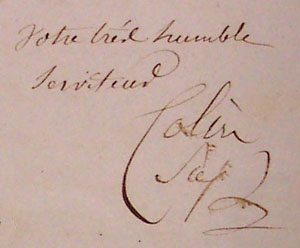 Votre tréd humble
Serviteur
Colin